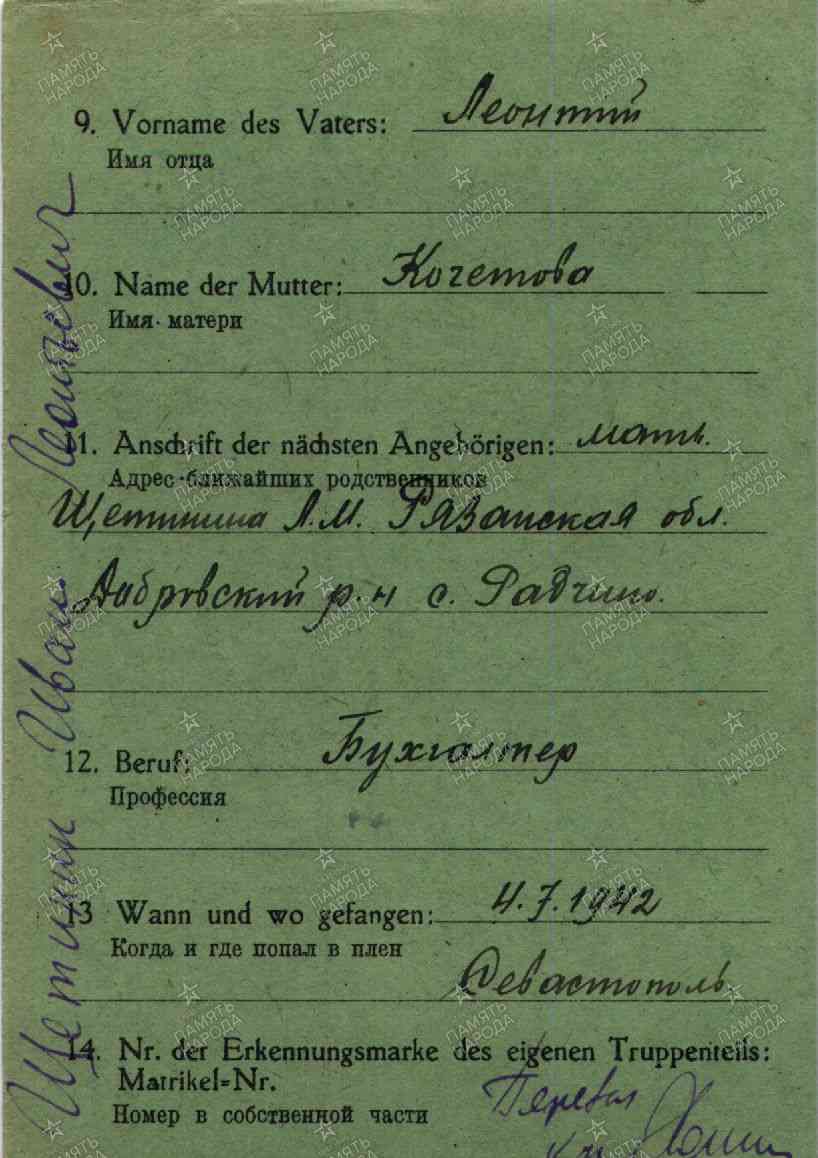 9. Vorname des Vaters: Леонтий
Имя отца
10. Name der Mutter: Кочетова
Имя матери
11. Anschrift der nächsten Angehörigen: мать.
Адрес ближайших родственников
Щетинина Л.М. Рязанская обл.
р.н с. Радчино.
12. Beruf: Бухгалтер
Профессия
13 Wann und wo gefangen: 4.7.1942
Когда и где попал в плен
Севастополь
14. Nr. der Erkennungsmarke des eigenen Truppenteils:
Matrikel=Nr.
Номер в собственной части
Перевел
Щетинин Иван Леонтьевич
ПАМЯТЬ НАРОДА